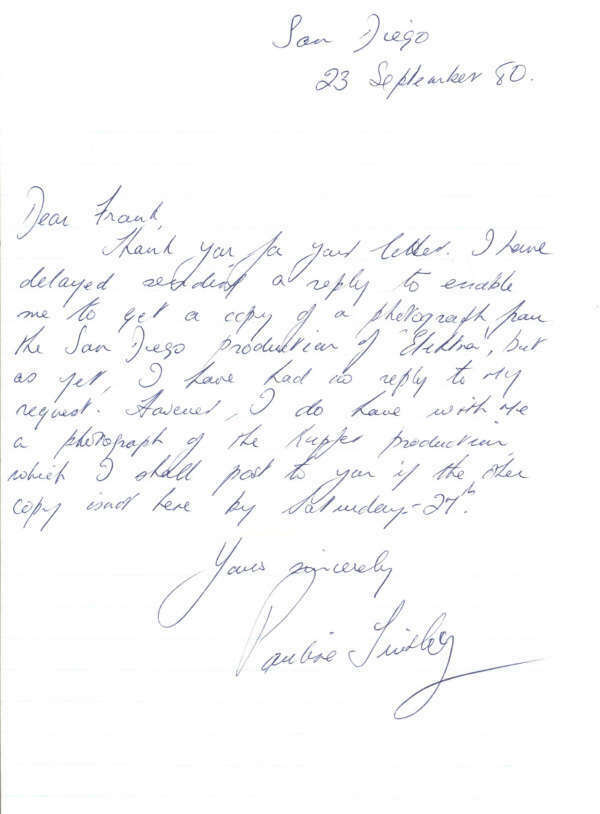 San Diego
23 September 80.
Dear Frank,
Thank you for your letter. I have
delayed sending a reply to enable
me to get a copy of a photograph from
the San Diego production of "Elektra", but
as yet, I have had no reply to my
request. However, I do have with me
a photograph of the Kupfer production,
which I shall post to you if the other
copy isnt here by Saturday - 27th.
Yours sincerely
Pauline Tinsley